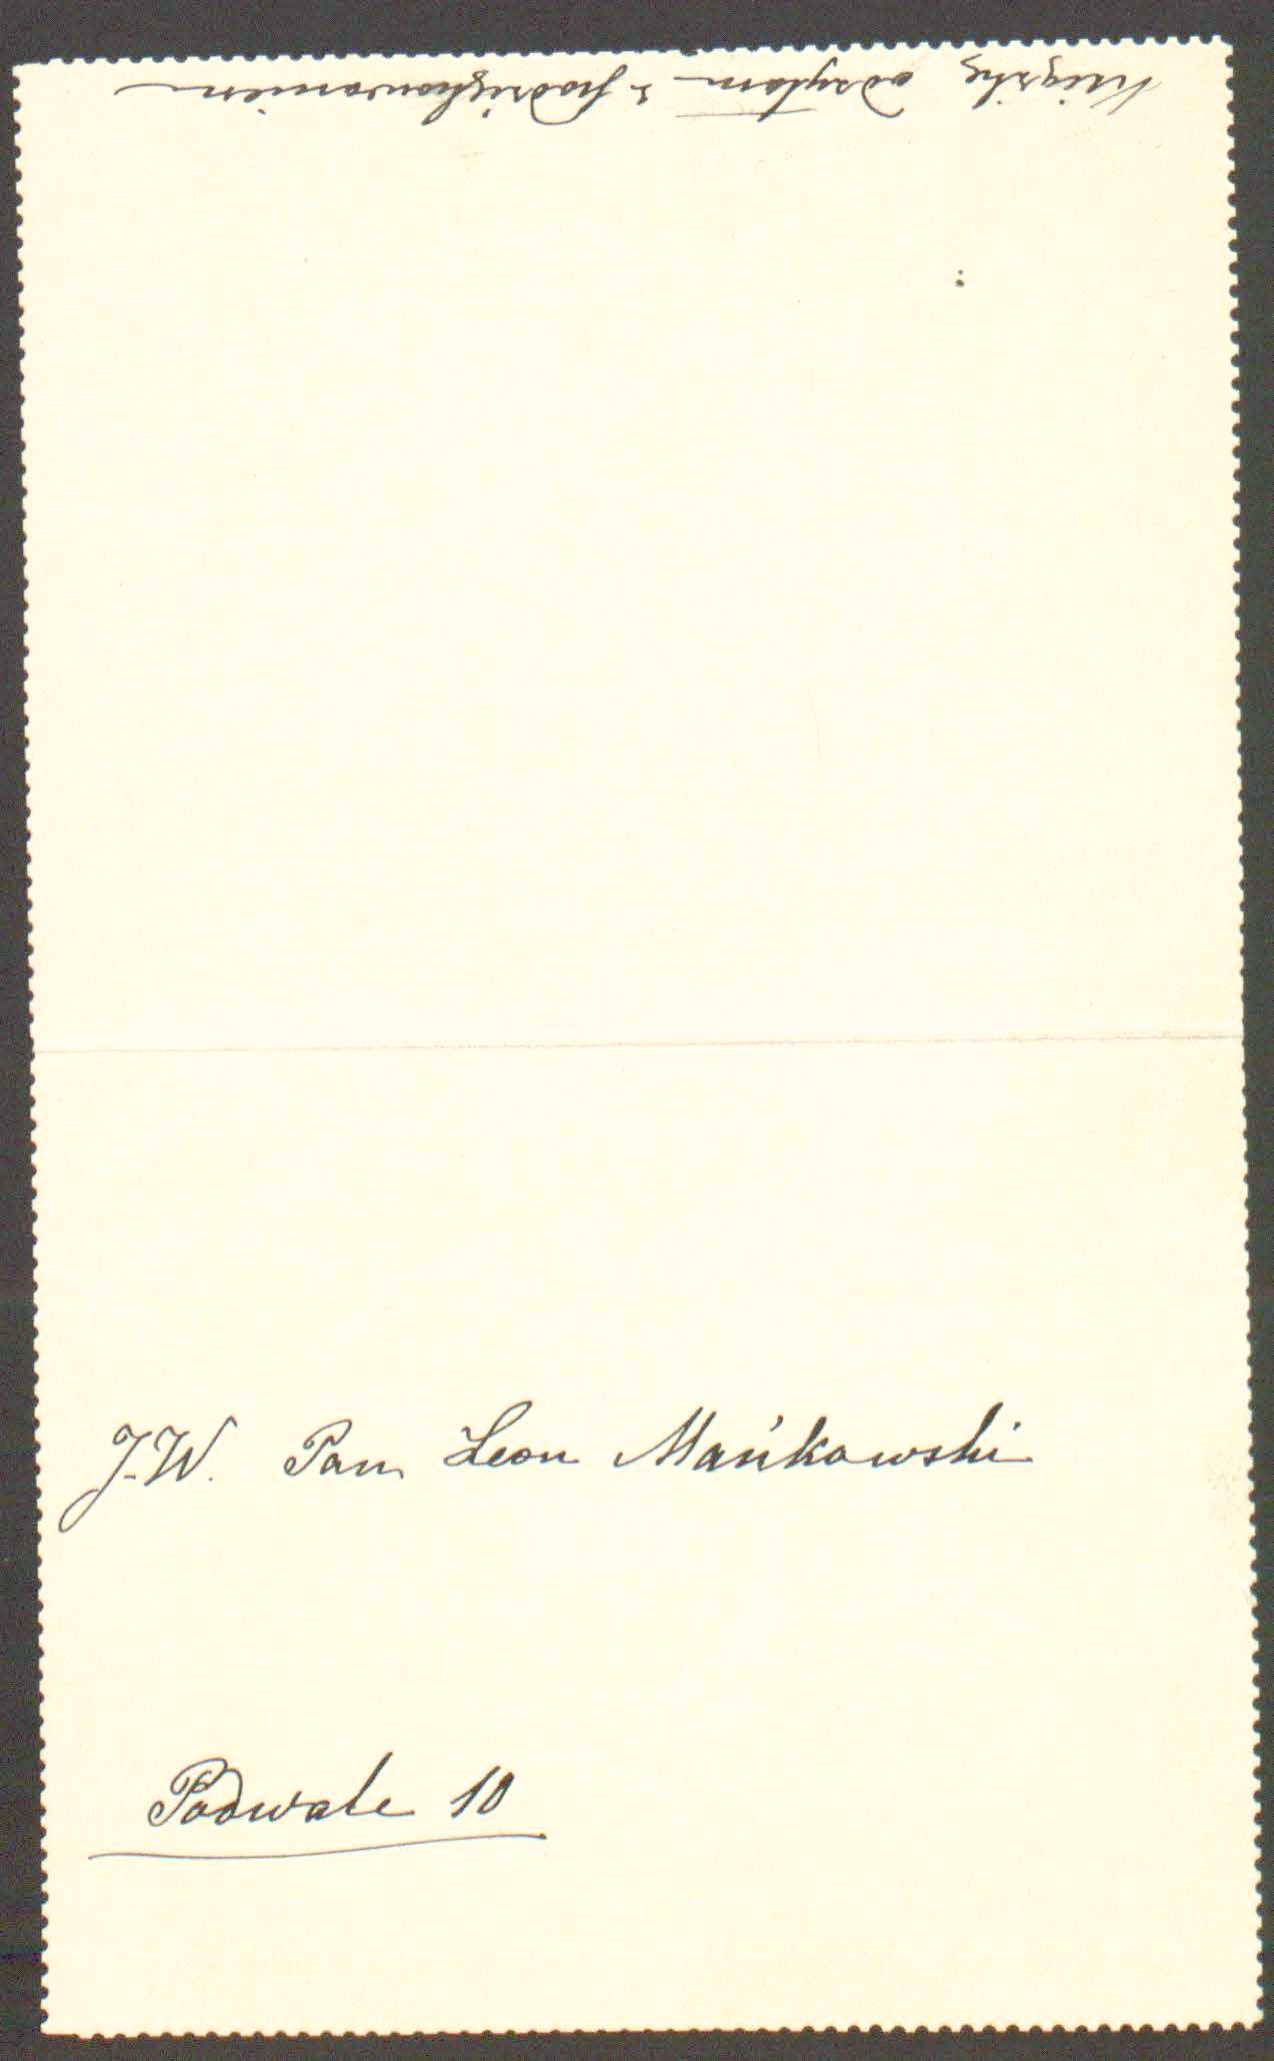 Książkę odsyłam z podziękowaniem
J.W. Pan Leon Mańkowski
Podwale 10